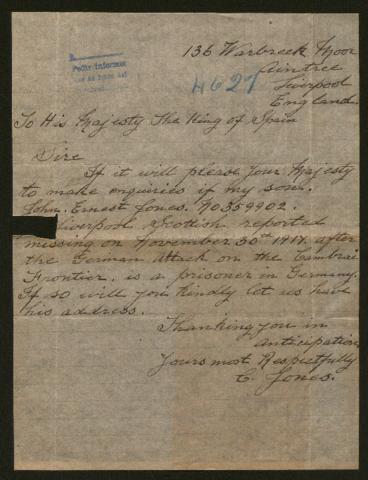 136 Warbreck Moor
Aintree
Liverpool
England.
Pedir informes
4627
To His Majesty The King of Spain
Sire
If it will please Your Majesty
to make enquiries if my son.
John. Ernest Jones. No 359902.
Liverpool Scottish reported
missing on November 30th 1917. after
the German Attack on the Cambrai
Frontier. is a prisoner in Germany.
If so will you kindly let us have
his address.
Thanking you in
anticipation
Yours most Respectfully
C. Jones.